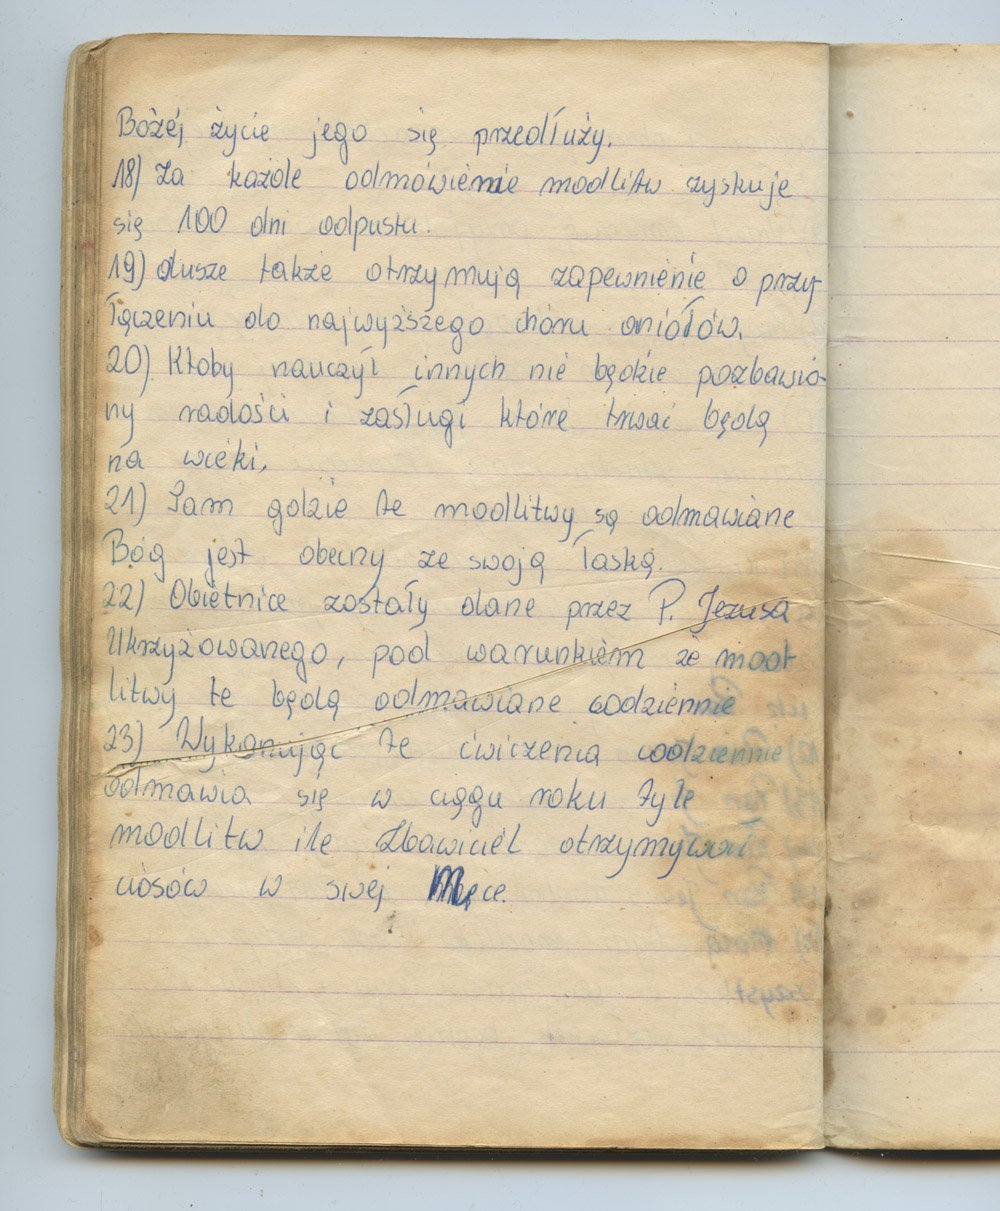 Bożej życie jego się przedłuży.
18) Za każde odmówienie modlitw zyskuje
się 100 dni odpustu.
19) dusze także otrzymują zapewnienie o przy-
łączeniu do najwyższego chóru aniołów.
20) Ktoby nauczył innych nie będzie pozbawio-
ny radości i zasługi które trwać będą
na wieki.
21) Tam gdzie te modlitwy są odmawiane
Bóg jest obecny ze swoją łaską.
22) Obietnice zostały dane przez P. Jezusa
Ukrzyżowanego, pod warunkiem że mod-
litwy te będą odmawiane codziennie
23) Wykonując te ćwiczenia codziennie
odmawia się w ciągu roku tyle
modlitw ile Zbawiciel otrzymywał
ciosów w swej Męce.